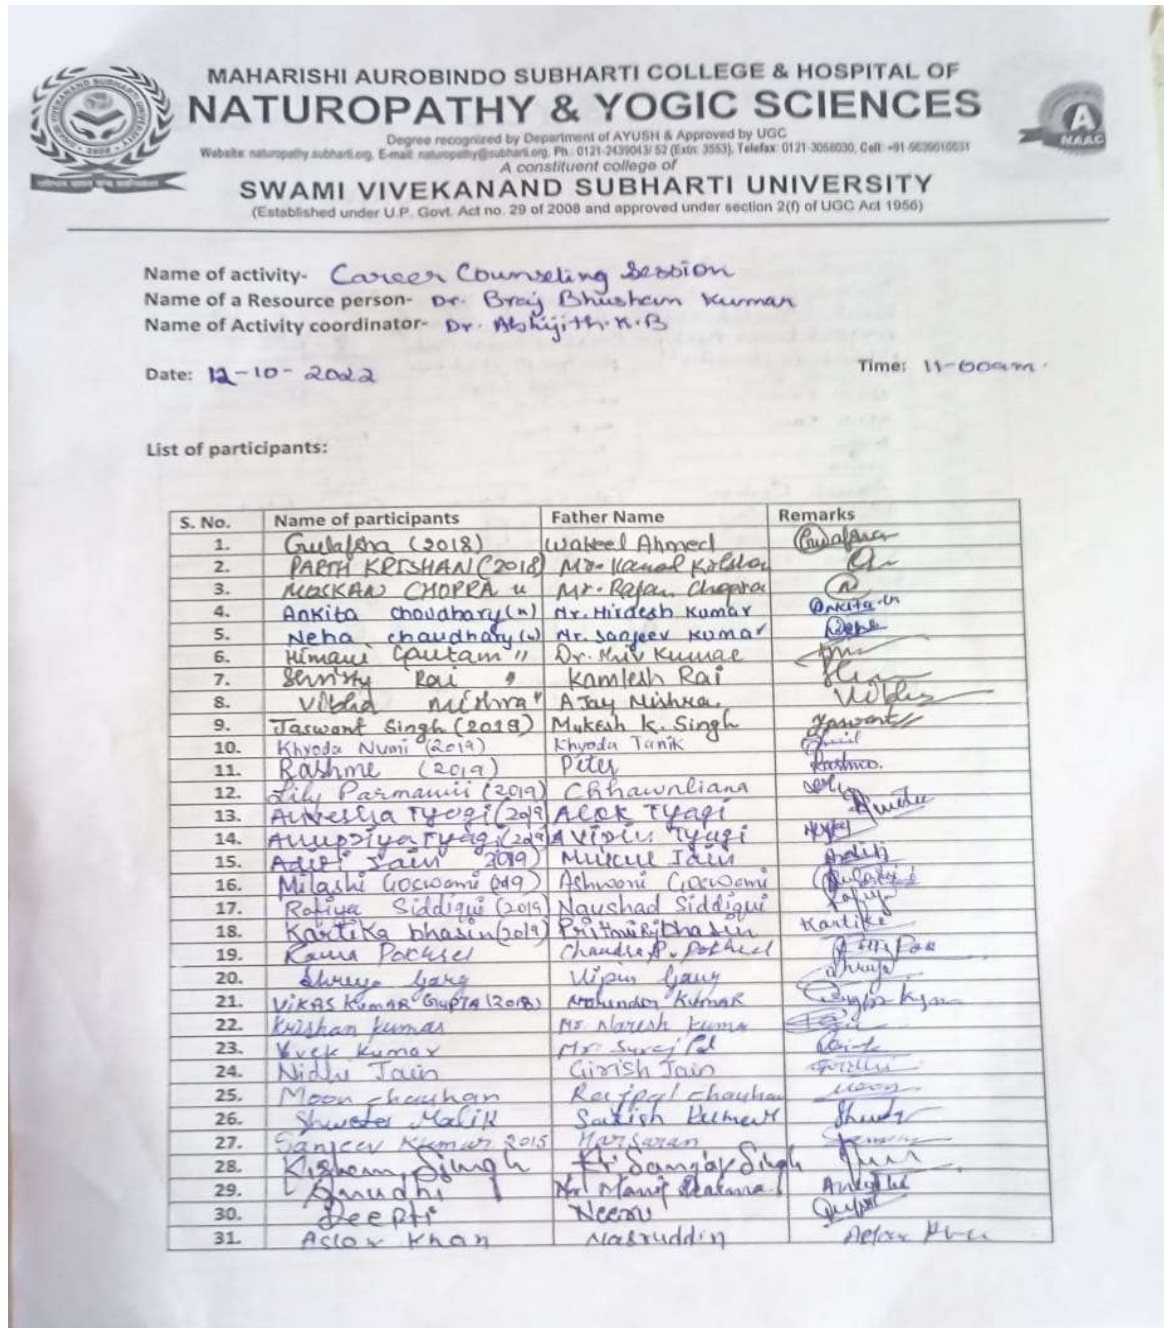 MAHARISHI AUROBINDO SUBHARTI COLLEGE & HOSPITAL OF
NATUROPATHY & YOGIC SCIENCES
Degree recognized by Department of AYUSH & Approved by UGC
Website: naturopathy.subharti.org, E-mail: naturopathy@subharti.org, Ph.: 0121-2439043/ 52 (Extn: 3553), Telefax: 0121-3056030, Cell: +91-9639010531
A constituent college of
SWAMI VIVEKANAND SUBHARTI UNIVERSITY
(Established under U.P. Govt. Act no. 29 of 2008 and approved under section 2(f) of UGC Act 1956)
A
NAAC
2008
Name of activity- Career Counseling Session
Name of a Resource person- Dr. Braj Bhushan Kumar
Name of Activity coordinator- Dr. Abhijith.K.B
Date: 12-10-2022 Time: 11-00am.
List of participants:
S. No. Name of participants Father Name Remarks
1. Gulafsha (2018) Wakeel Ahmed
2. PARTH KRISHAN (2018) Mr.
3. MUSKAN CHOPRA Mr. Rajan Chopra
4. Ankita choudhary (") Mr. Hirdesh Kumar Ankita
5. Neha chaudhary (") Mr. Sanjeev Kumar Neha
6. Himani Gautam " Dr. Shiv Kumar
7. Rai " Kamlesh Rai
8. Mishra " Ajay Mishra
9. Jaswant Singh (2019) Mukesh K. Singh Jaswant
10. Khyoda Numi (2019) Khyoda Tanik
11. Rashme (2019) Peter
12. Lily Parmawii (2019) Chhawnliana
13. Tyagi (2019) Alok Tyagi
14. Anupriya Tyagi (2019) Vipin Tyagi
15. Aditi Jain 2019) Mukul Jain Aditi
16. Milashi Goswami (2019) Ashwani Goswami
17. Rafiya Siddiqui (2019) Naushad Siddiqui Rafiya
18. Kartika bhasin (2019) Prithvi Raj bhasin Kartika
19.
20. Shreya Garg Vipin Garg Shreya
21. VIKAS KUMAR GUPTA (2018) Mahender KUMAR
22. Krishan kumar Mr. Naresh kumar
23. Vivek Kumar Mr. Suraj Pal
24. Nidhi Jain Girish Jain
25. Moon chauhan Rajpal chauhan Moon
26. Shweta Malik Satish kumar Shweta
27. Sanjeev Kumar 2015 Harsaran
28. Singh Sanjay Singh
29. Mr. Manoj
30. Deepti Neeru
31. Khan Nasruddin